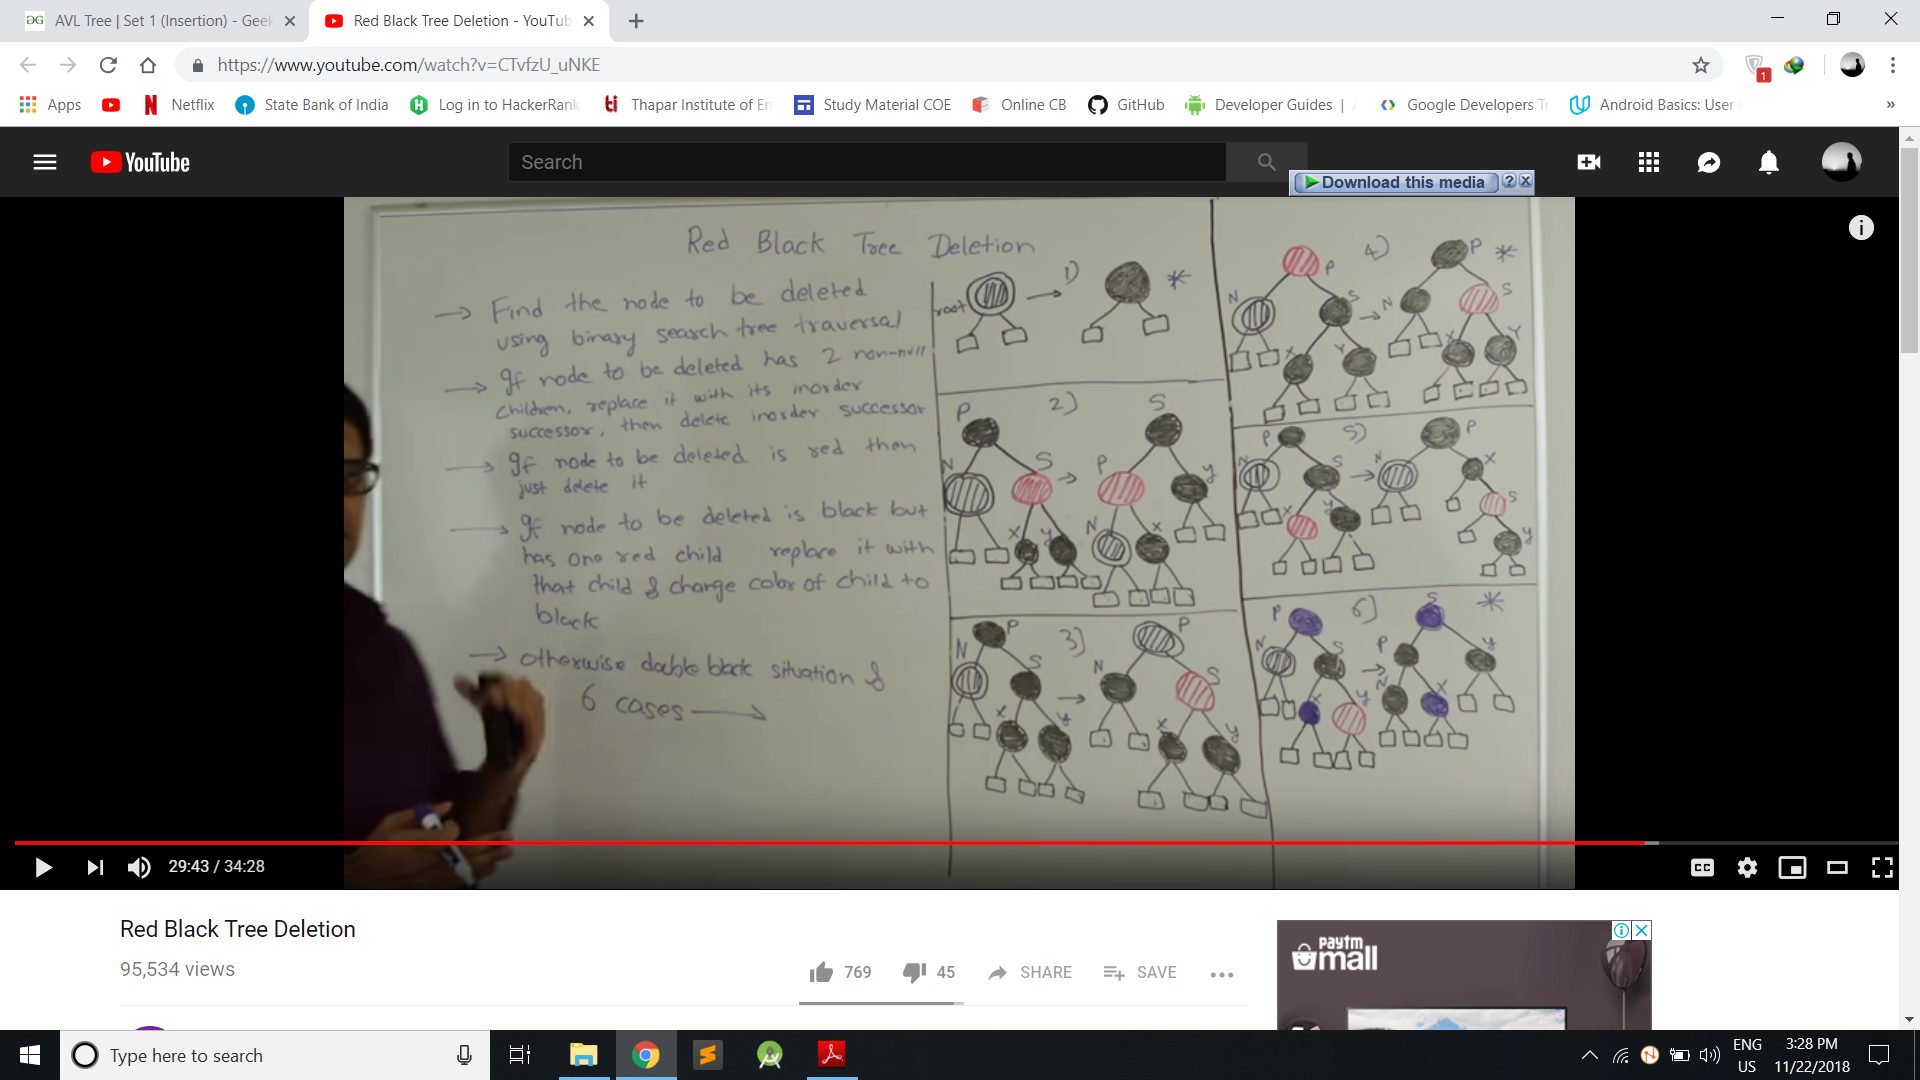 AVL Tree | Set 1 (Insertion) - Geek
Red Black Tree Deletion - YouTub
https://www.youtube.com/watch?v=CTvfzU_uNKE
1
Apps
Netflix
State Bank of India
Log in to HackerRank
Thapar Institute of En
Study Material COE
Online CB
GitHub
Developer Guides |
Google Developers Tr
Android Basics: User
»
YouTube
Search
Download this media
Red Black Tree Deletion
→ Find the node to be deleted
using binary search tree traversal
→ If node to be deleted has 2 non-null
children, replace it with its inorder
successor, then delete inorder successor
→ If node to be deleted is red then
just delete it
→ If node to be deleted is black but
has one red child replace it with
that child & change color of child to
black
→ otherwise double black situation &
6 cases →
root → 1) *
2)
P S
N S → P y
X y N X
3)
P P
N S → N S
X y X y
4)
P P *
N S → N S
X Y X Y
5)
P P
N S → N X
X y S
y
6)
P S *
N S → P y
X y N X
29:43 / 34:28
CC
Red Black Tree Deletion
95,534 views
769
45
SHARE
SAVE
paytm
mall
Type here to search
ENG
US
3:28 PM
11/22/2018